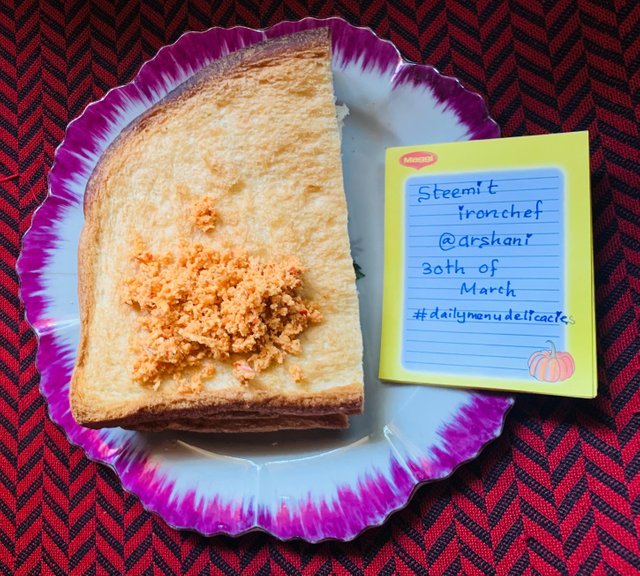 Maggi
Steemit
ironchef
@arshani
30th of
March
#dailymenudelicacies